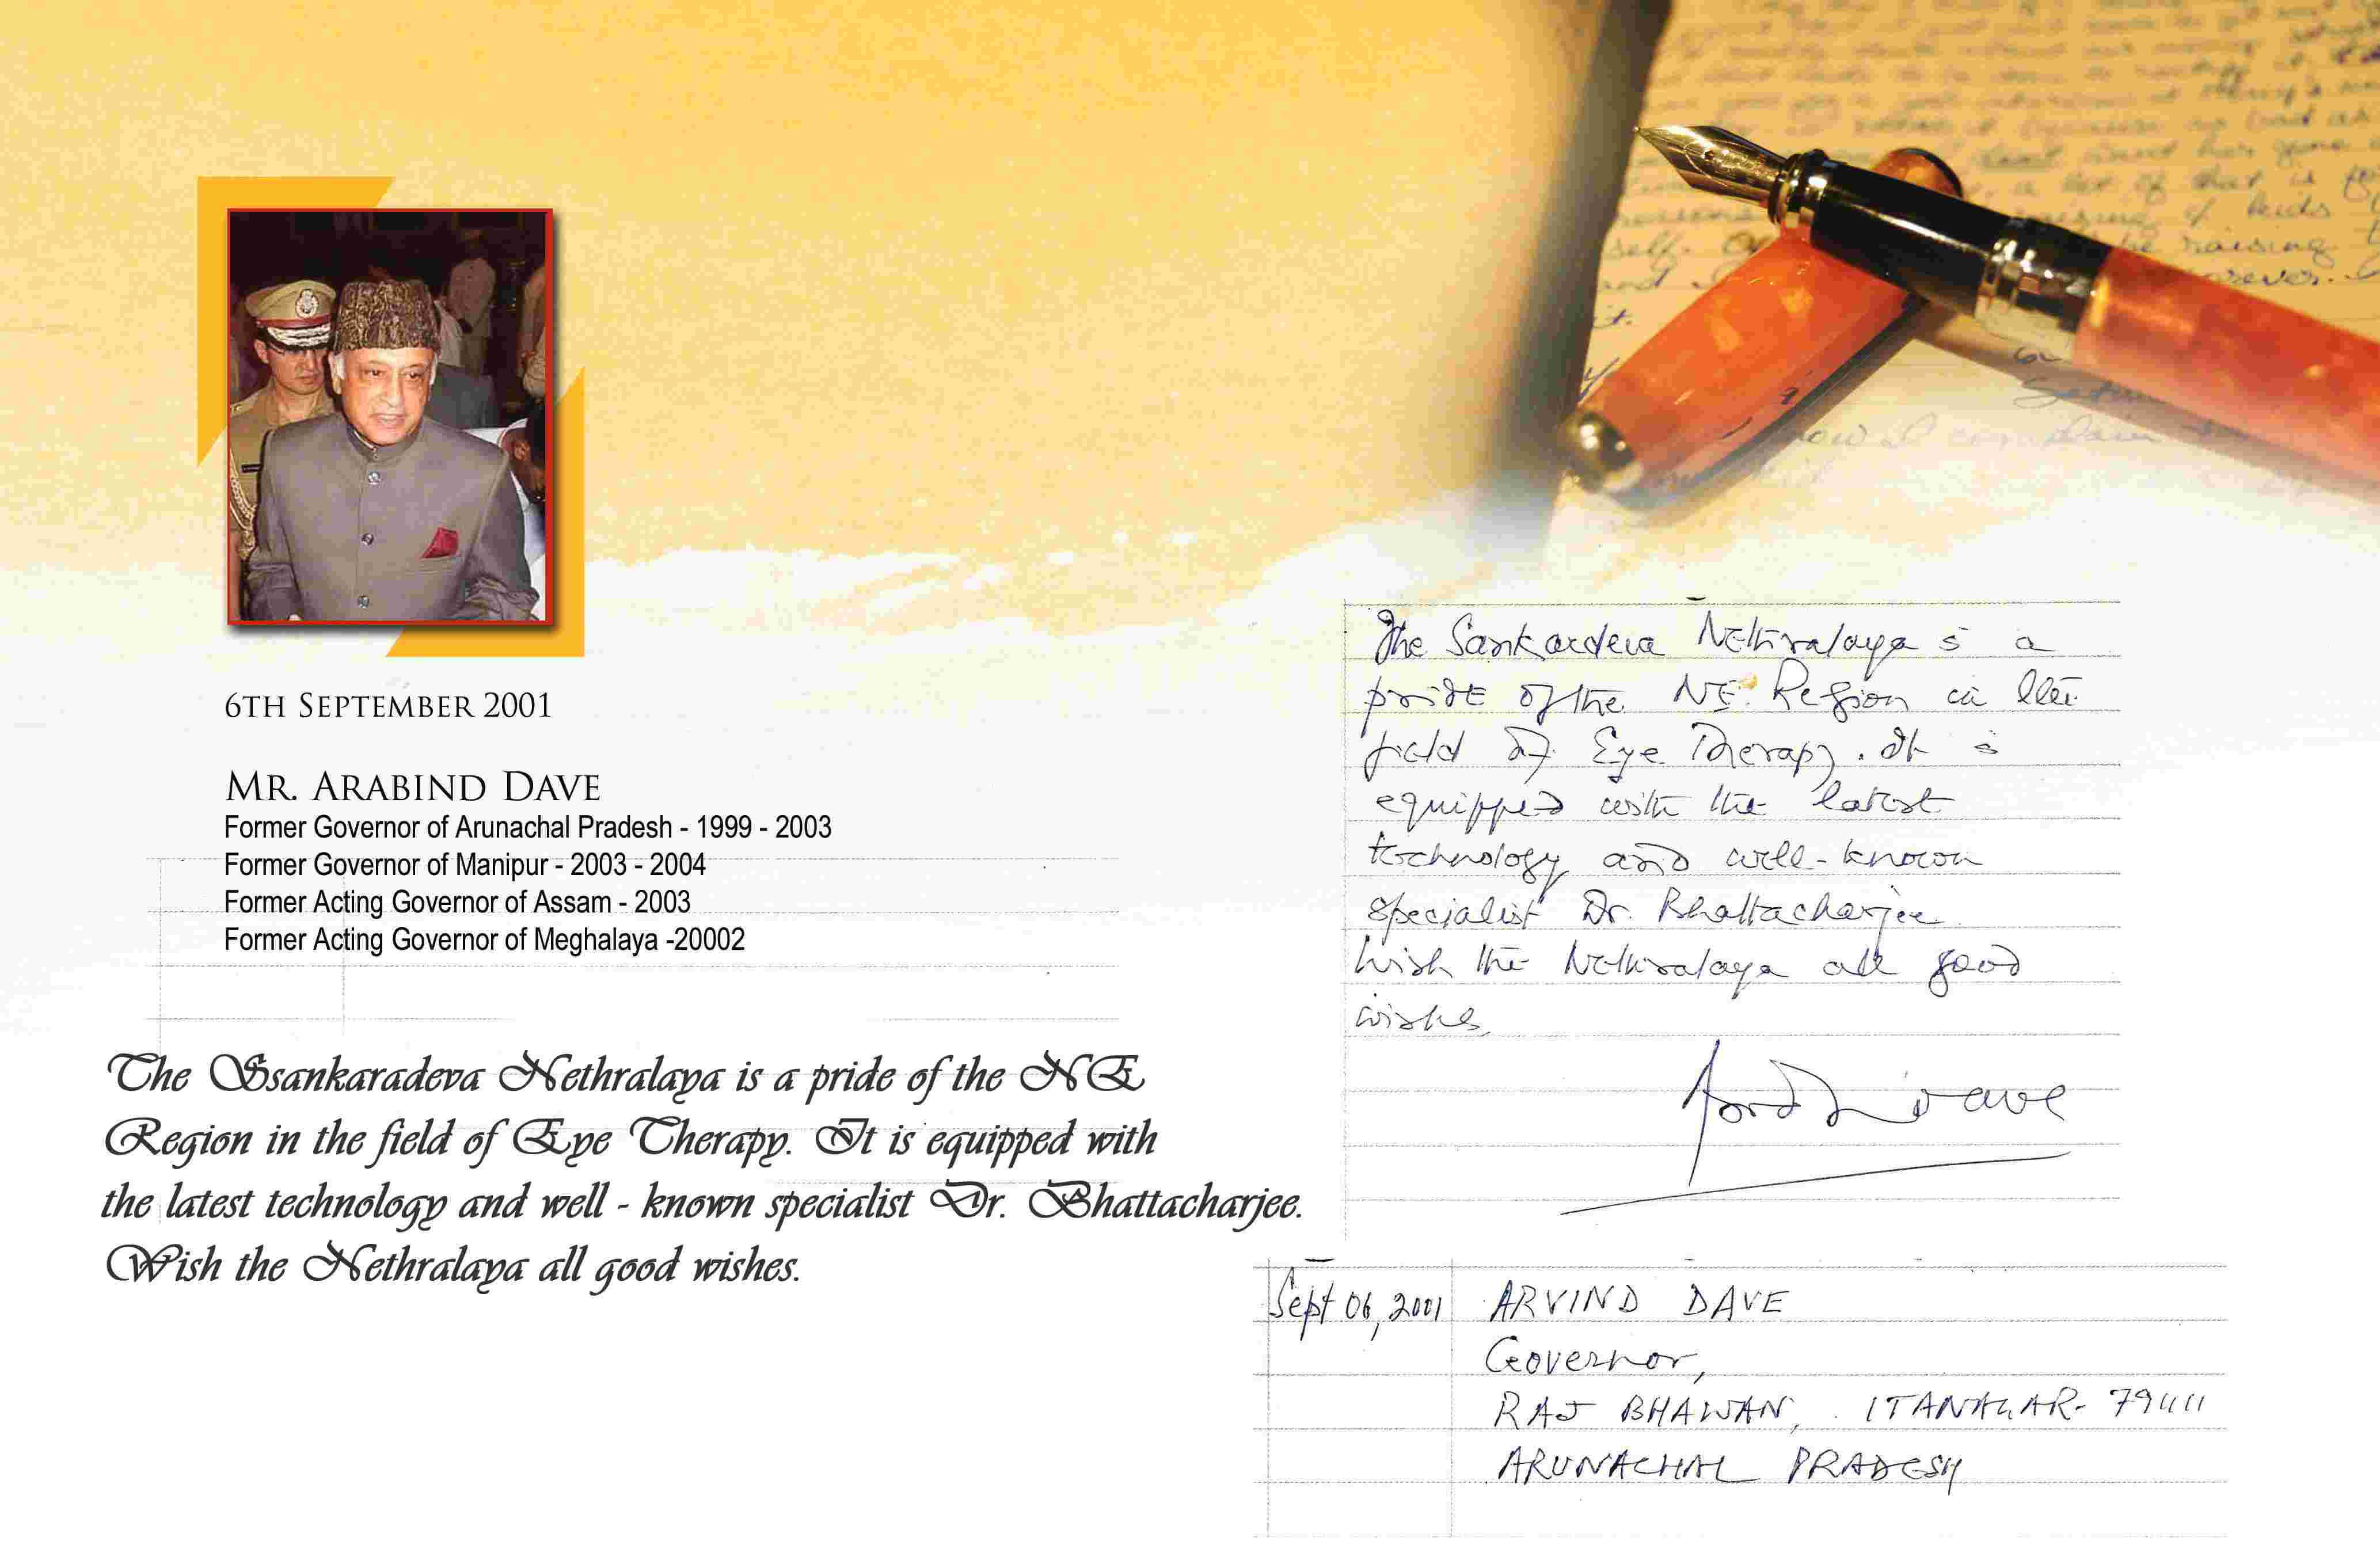 6TH SEPTEMBER 2001
MR. ARABIND DAVE
Former Governor of Arunachal Pradesh - 1999 - 2003
Former Governor of Manipur - 2003 - 2004
Former Acting Governor of Assam - 2003
Former Acting Governor of Meghalaya -20002
The Ssankaradeva Nethralaya is a pride of the NE
Region in the field of Eye Therapy. It is equipped with
the latest technology and well - known specialist Dr. Bhattacharjee.
Wish the Nethralaya all good wishes.
The Sankardeva Nethralaya is a
pride of the NE Region in the
field of Eye Therapy. It is
equipped with the latest
technology and well-known
specialist Dr. Bhattacharjee
Wish the Nethralaya all good
wishes
Dave
Sept 06, 2001 ARVIND DAVE
Governor,
RAJ BHAWAN, ITANAGAR- 791111
ARUNACHAL PRADESH